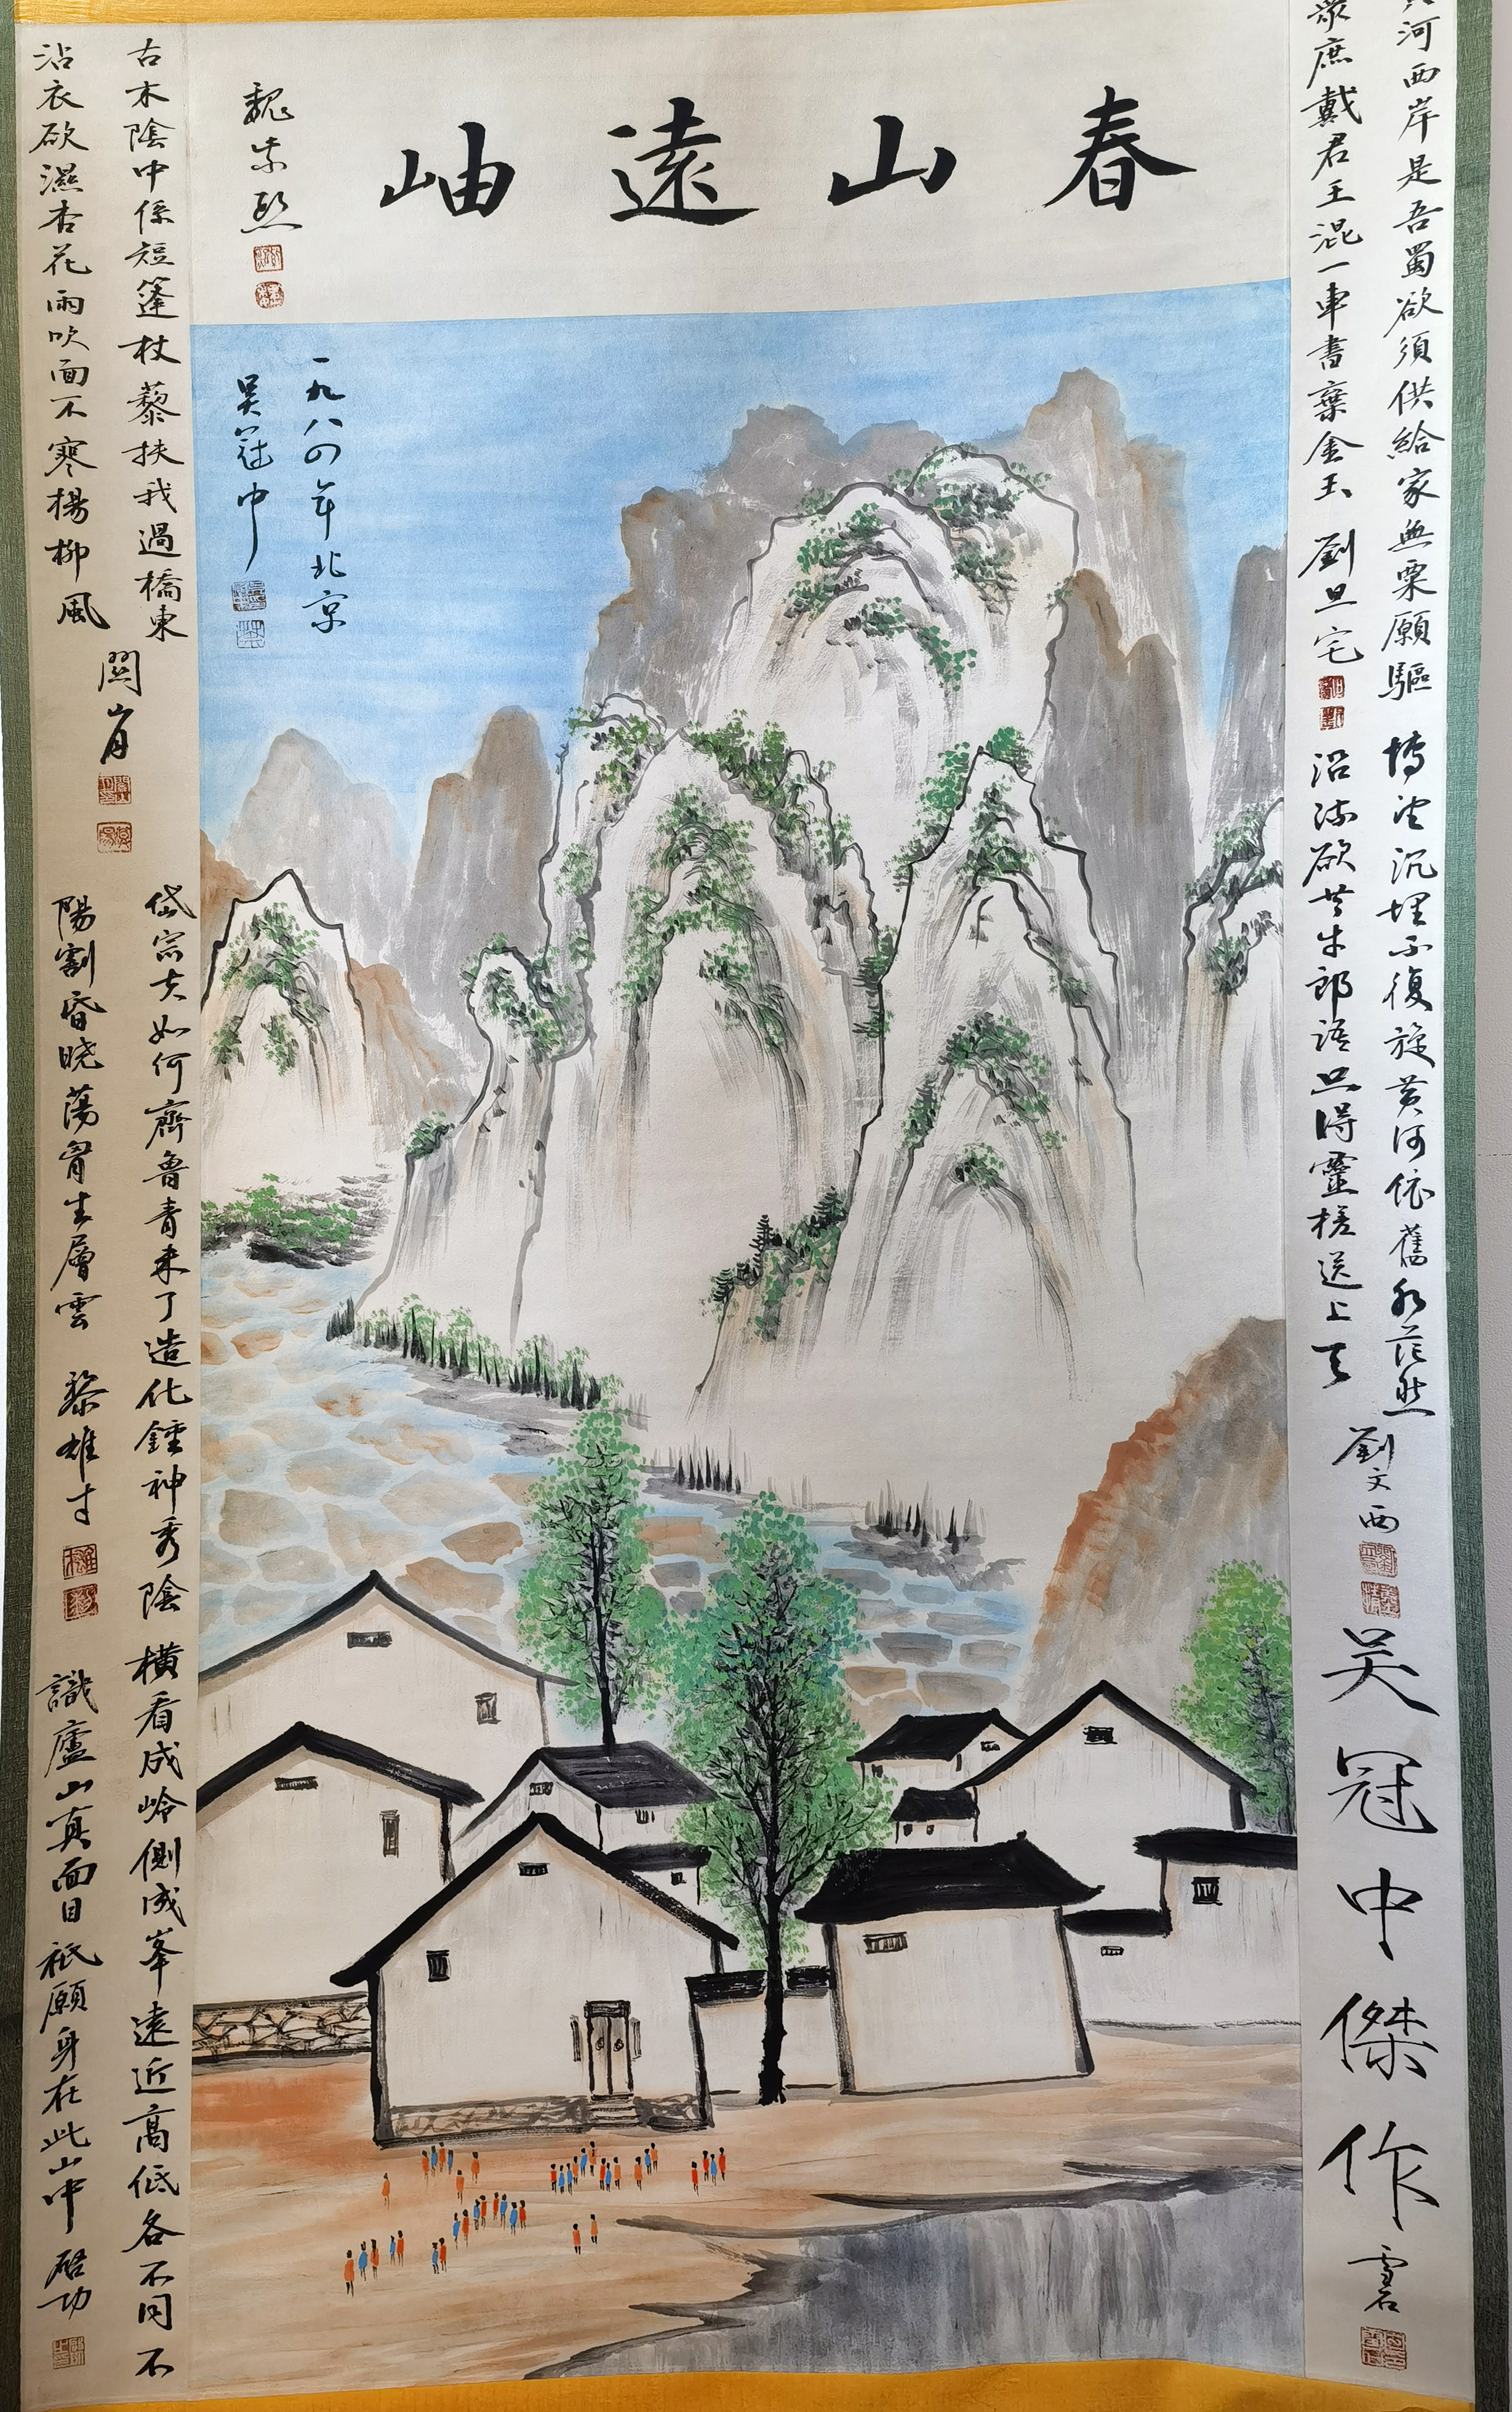 春山遠岫
魏紫熙
河西岸是吾蜀欲須供給家無粟願驅
眾庶戴君王混一車書棄金玉
劉旦宅
博望沉埋不復旋黃河依舊水茫然
沿流欲共牛郎語只得靈槎送上天
劉文西
吴冠中傑作
一九八四年北京
吴冠中
古木陰中係短篷杖藜扶我過橋東
沾衣欲濕杏花雨吹面不寒楊柳風
關山月
岱宗夫如何齊魯青未了造化鍾神秀陰
陽割昏曉蕩胷生層雲
黎雄才
橫看成岭側成峯遠近高低各不同不
識廬山真面目祇願身在此山中
啓功